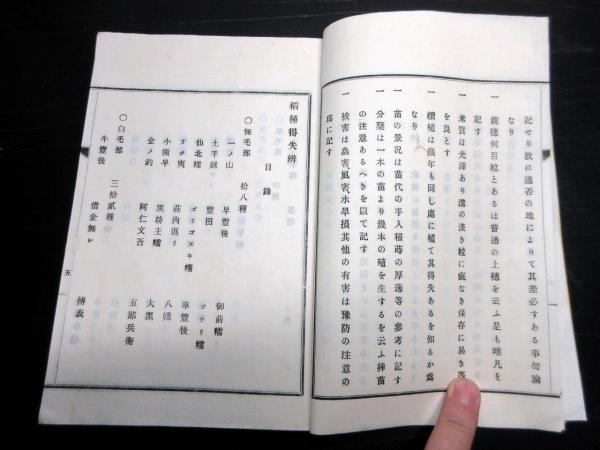 記せり故に適否の地によりて其差必すある事勿論
なり
一 親穗何百粒とあるは普通の上穗を云ふ是も唯凡を
記す
一 米質は光澤あり溝の淺き粒に疵なき保存に易き等
を良とす
一 續植は幾年も同し處に植て其得失あるを知るか爲
なり
一 苗の景況は苗代の手入種蒔の厚薄等の參考に記す
一 分蘖は一本の苗より幾本の殖を生するを云ふ挿苗
の注意あるべきを以て記す
一 被害は蟲害風害水旱損其他の有害は豫防の注意の
爲に記す
稻種得失辨
目錄
〇無毛部 拾八種
一ノ山 早豊後 御前糯
土手越 豊田 コマリ糯
仙北糯 コミコヌキ糯 車豊後
オク爽 莊内返リ 八幡
小関早 黑坊主糯 大黑
金ノ釣 阿仁文吾 五郎兵衛
〇白毛部 三拾貳種
牛豊後 借金無シ 傳表
五